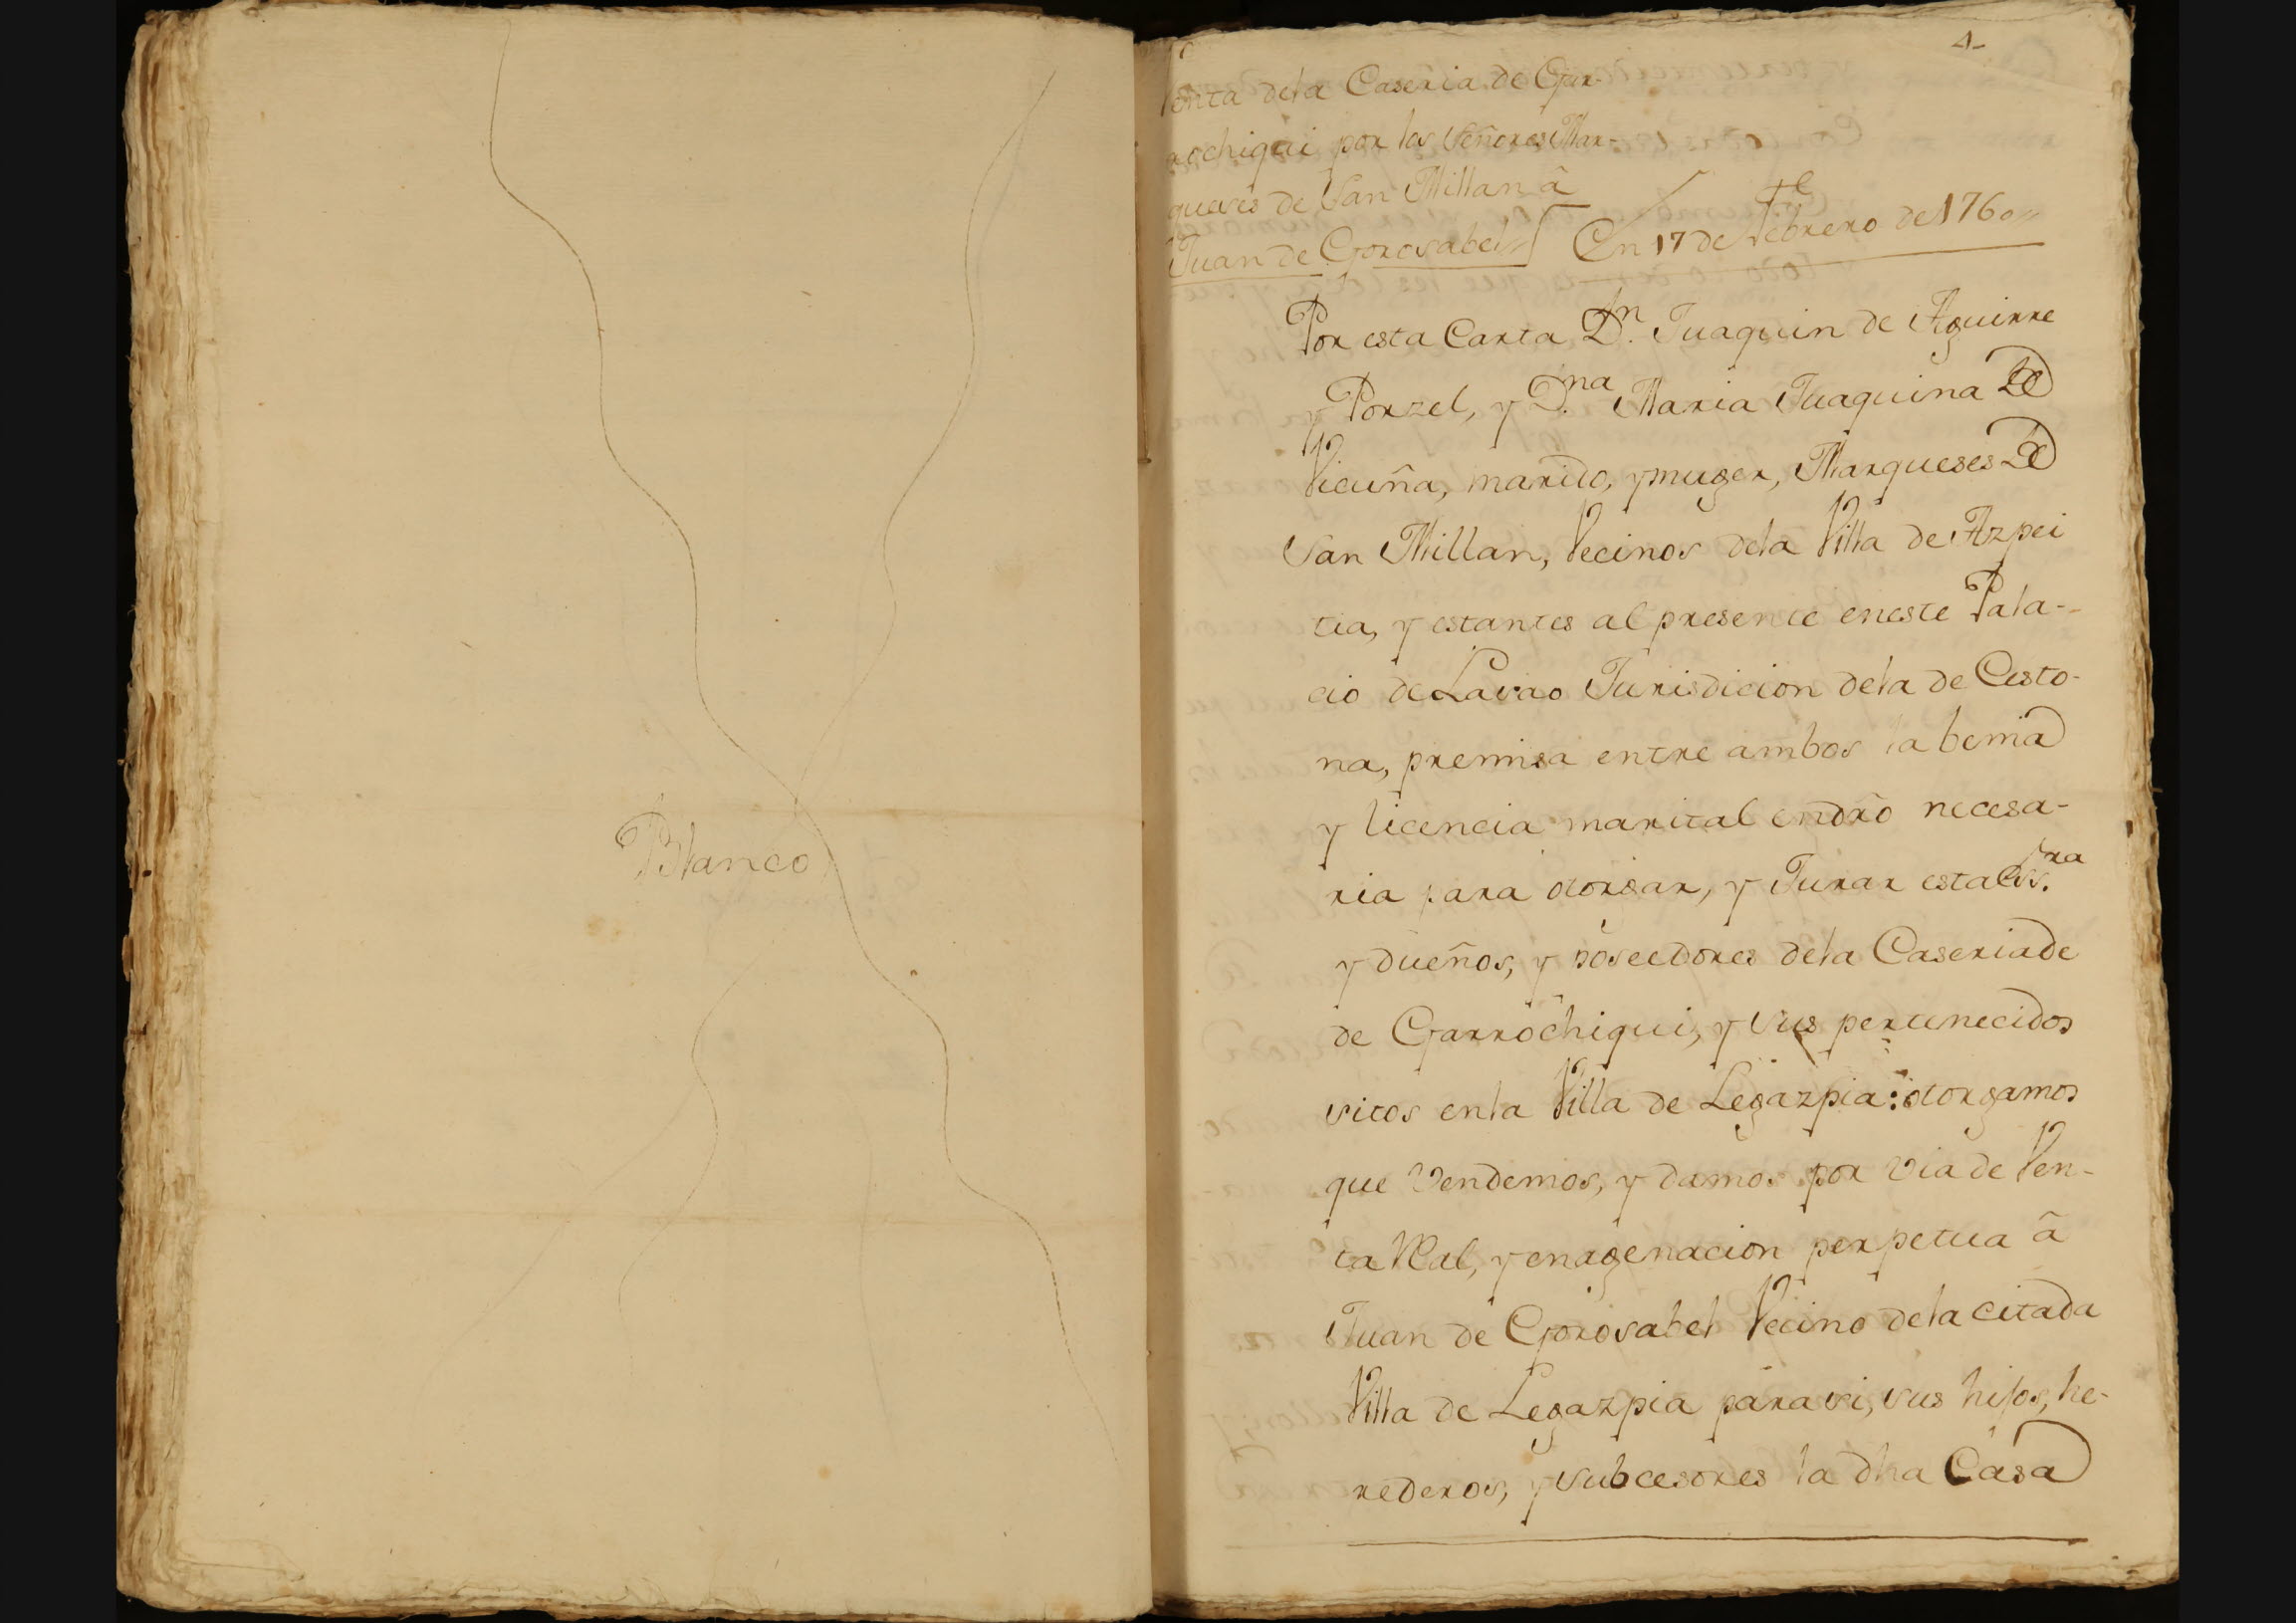 Blanco
4
Venta dela Caseria de Gar-
rochiqui por los Señores Mar-
queses de San Millan â
Juan de Gorosabel〃 En 17 de Febrero de 1760〃
Por esta Carta Dn. Juaquin de Aguirre
y Porzel, y D.na Maria Juaquina de
Vicuña, marido, y muger, Marqueses de
San Millan, Vecinos dela Villa de Azpei
tia, y estantes al presente eneste Pala-
cio de Lavao Jurisdicion dela de Cesto-
na, premisa entre ambos la benia
y licencia marital endrõ necesa-
ria para otorgar, y Jurar esta Ess.ra
y dueños, y poseedores dela Caseria de
de Garrochiqui, y sus pertenecidos
sitos enla Villa de Legazpia: otorgamos
que Vendemos, y damos por via de Ven-
ta Real, y enagenacion perpetua â
Juan de Gorosabel Vecino dela citada
Villa de Legazpia para si, sus hijos, he-
rederos, y subcesores la dha Casa